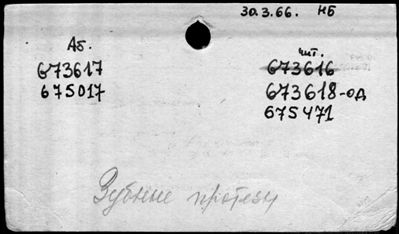 30.3.66. НБ
Аб.
673617
675017
чит.
673616
673618-од
675471
Зубные протезы